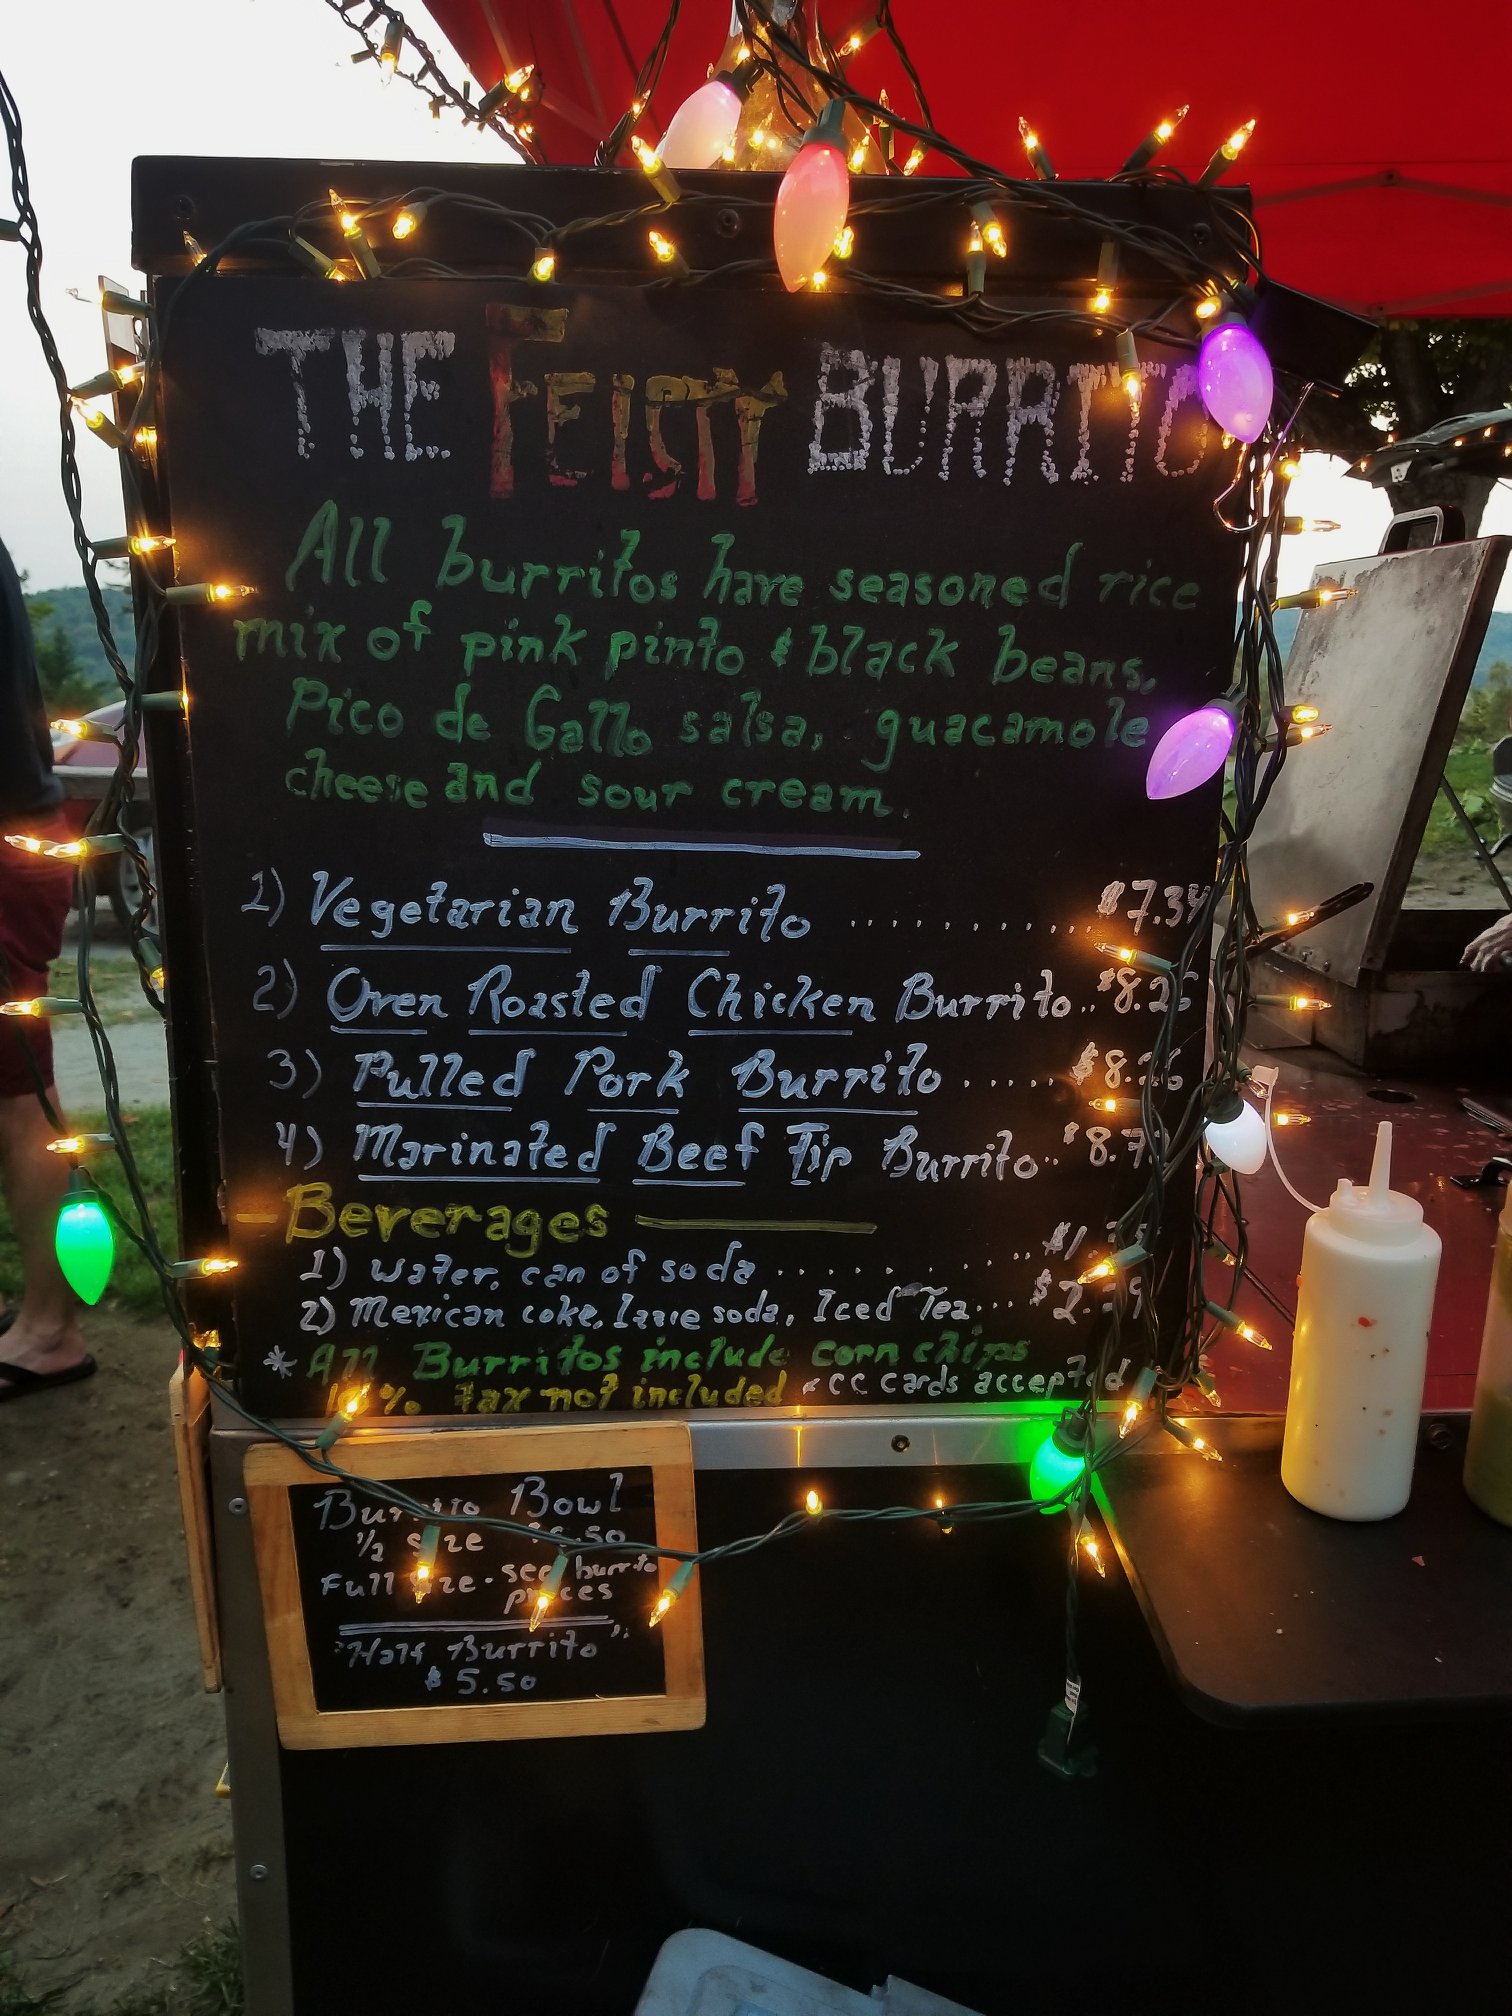 THE FEISTY BURRITO
All burritos have seasoned rice
mix of pink pinto & black beans,
Pico de Gallo salsa, guacamole
cheese and sour cream.
1) Vegetarian Burrito ........... $7.34
2) Oven Roasted Chicken Burrito.. $8.26
3) Pulled Pork Burrito ..... $8.26
4) Marinated Beef Tip Burrito..
- Beverages
1) Water, can of soda ...........
2) Mexican coke, Izzie soda, Iced Tea...
* All Burritos include corn chips
tax not included & CC cards accepted
Burrito Bowl
1/2 size
Full size - see burrito
prices
"Half Burrito"
$5.50